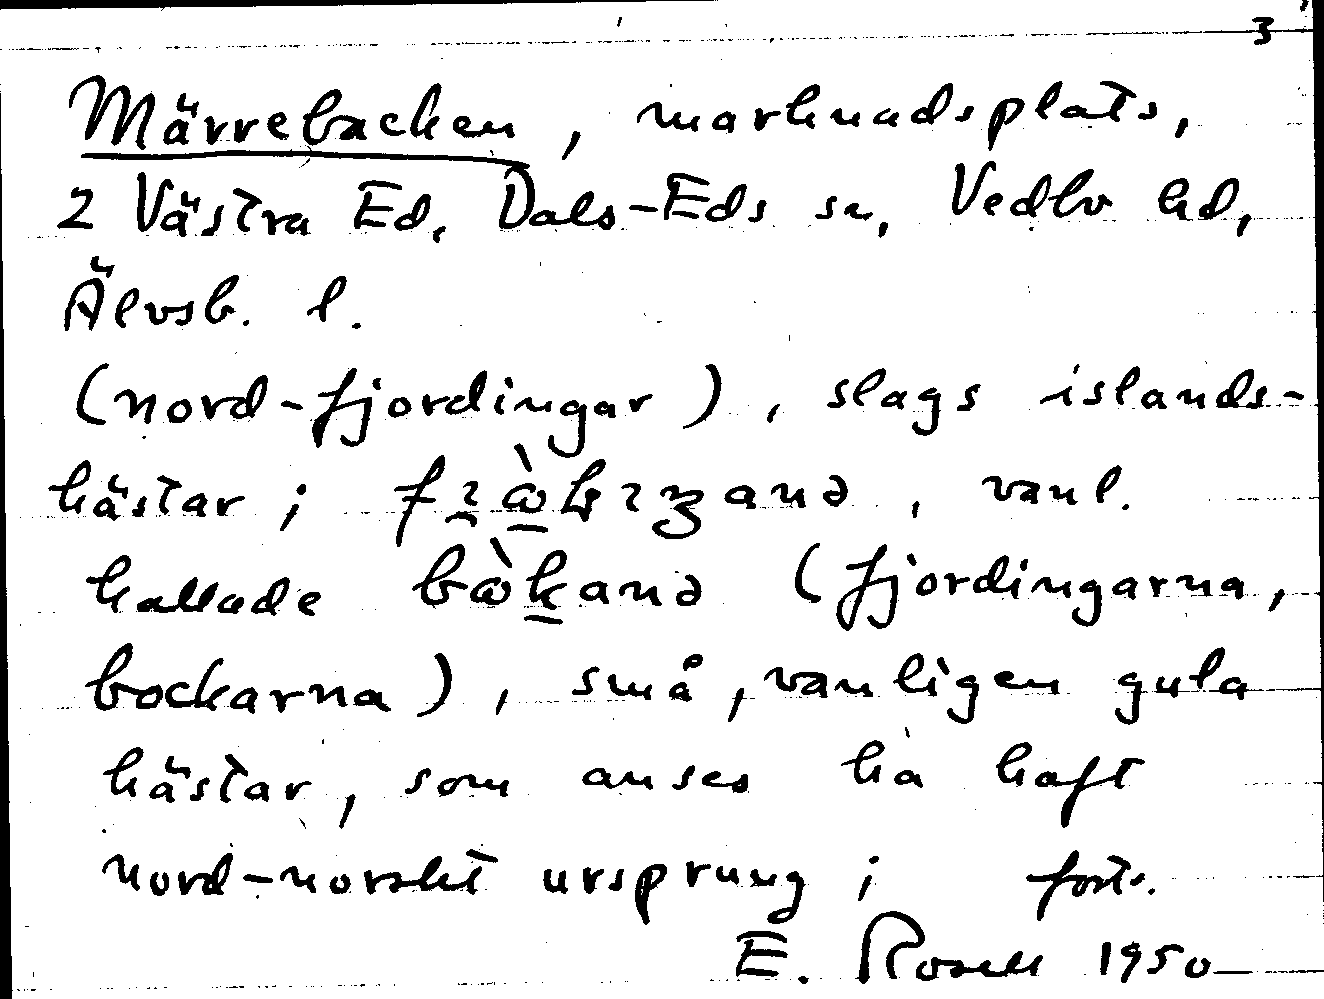 3
Märrebacken, marknadsplats,
2 Västra Ed, Dals-Eds sn, Vedbo hd,
Älvsb. l.
(nord-fjordingar), slags islands-
hästar; vanl.
kallade (fjordingarna,
bockarna), små, vanligen gula
hästar, som anses ha haft
nord-norskt ursprung; forts.
E. Rosell 1950